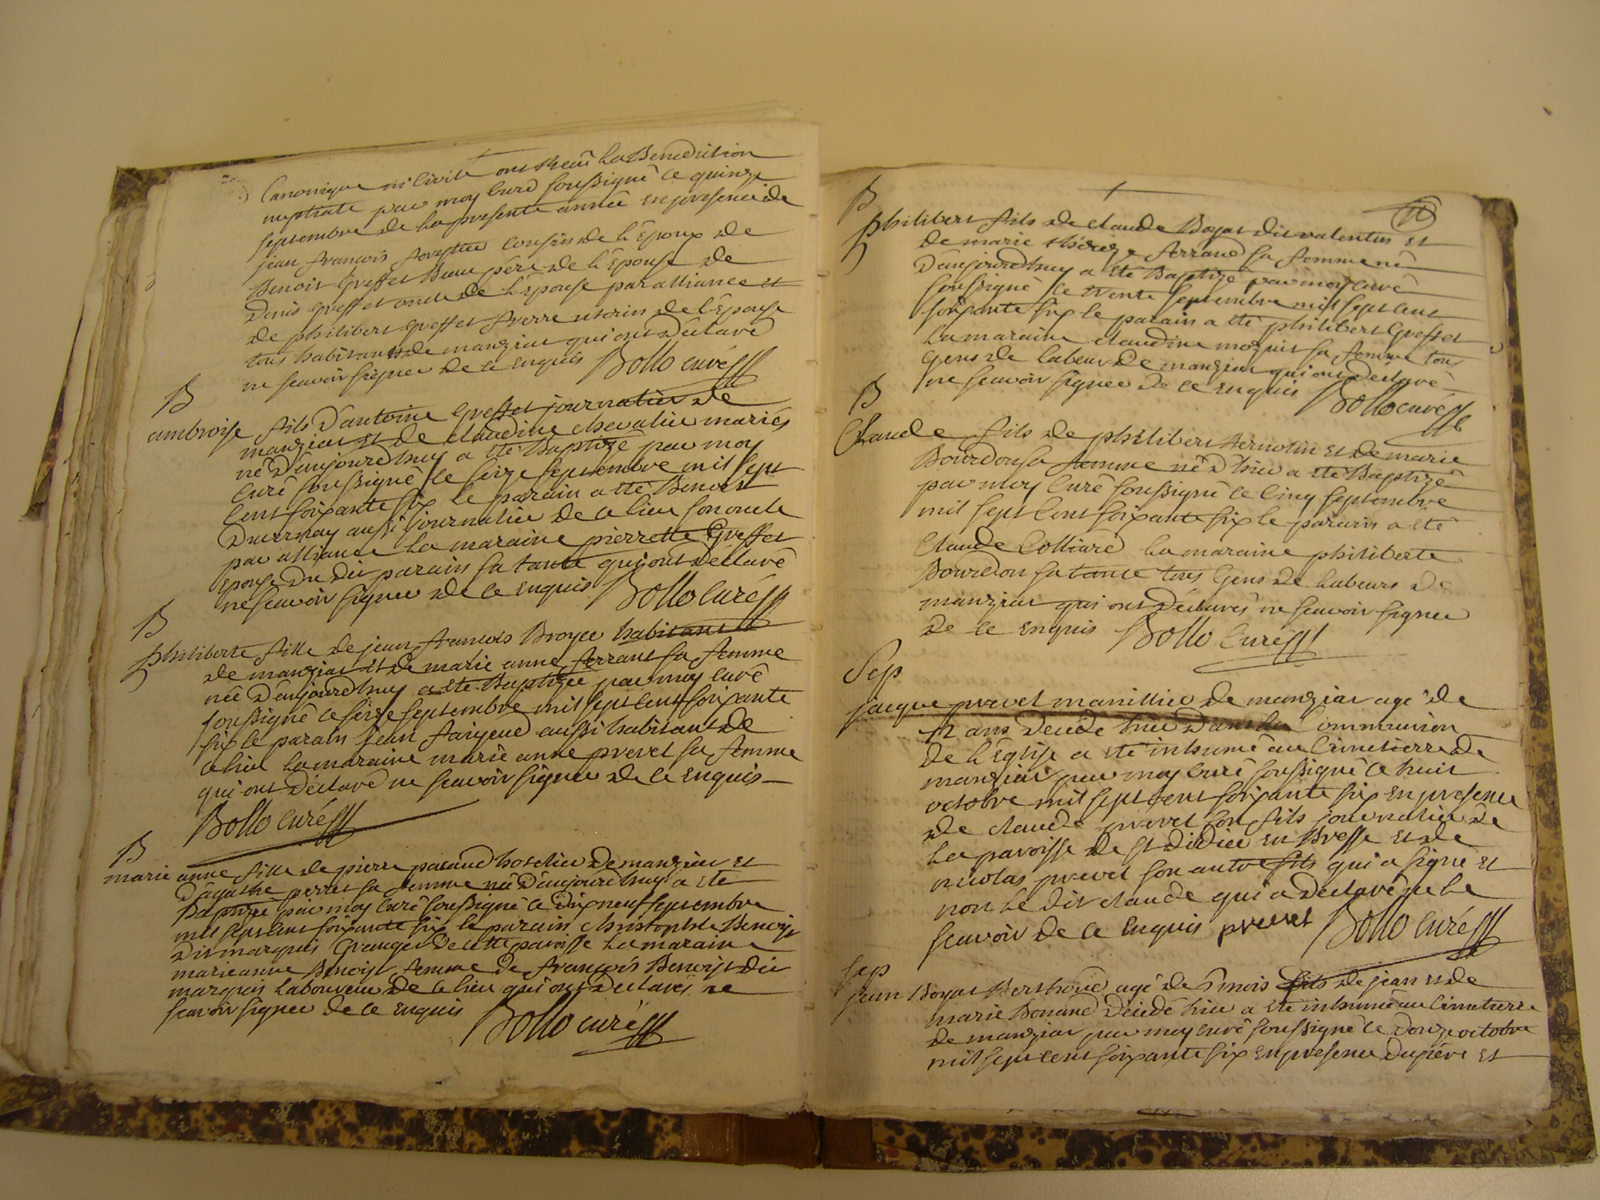 Canonique ni Civile ont Receu la Benediction
nuptiale par moy Curé soussigné le quinze
septembre de la presente année en presence de
jean francois cousin de l'Epoux de
Benoit Greffet Beau pére de l'Epouse de
Denis Greffet oncle de l'Epouse par alliance et
de philibert Greffet frere uterin de l'Epouse
tous habitants de manziat qui ont declaré
ne scavoir signer de ce Enquis Bollo curé
B
ambroise fils d'antoine Greffet journalier de
manziat et de claudine chevalier mariés
né d'aujourd'huy a été Baptizé par moy
Curé soussigné le seize septembre mil sept
Cent soixante six le parain a été Benoit
Duvernay aussi journalier de ce lieu son oncle
par alliance la maraine pierrette Greffet
Epouse du dit parain sa tante qui ont declaré
ne scavoir signer de ce Enquis Bollo Curé
B
philiberte fille de jean francois Broyer habitant
de manziat et de marie anne ferrant sa femme
née d'aujourd'huy a été Baptizée par moy curé
soussigné le seize septembre mil sept cent soixante
six le parain jean aussi habitant de
ce lieu la maraine marie anne prevet sa femme
qui ont déclaré ne scavoir signer de ce Enquis
Bollo Curé
B
marie anne fille de pierre pacaud hostelier de manziat et
d'agathe perret sa femme née d'aujourd'huy a été
Baptizée par moy Curé soussigné le dix neuf septembre
mil sept cent soixante six le parain christophle Benoist
dit marquis Granger de cette paroisse la maraine
marie anne Benoist femme de francois Benoist dit
marquis laboureur de ce lieu qui ont declarés ne
scavoir signer de ce Enquis Bollo curé
11
B
philibert fils de claude Boyat dit valentin et
de marie thérèze ferrand sa femme né
d'aujourd'huy a été Baptizé par moy curé
soussigné le trente septembre mil sept cent
soixante six le parain a été philibert Greffet
la maraine claudine sa femme tous
Gens de labeur de manziat qui ont declaré
ne scavoir signer de ce Enquis Bollo curé
B
Claude fils de philibert et de marie
Bourdon sa femme né d'hier a été Baptizé
par moy Curé soussigné le Cinq septembre
mil sept Cent soixante six le parain a été
Claude Colliard la maraine philiberte
Bourdon sa tante tous Gens de labeurs de
manziat qui ont déclarés ne scavoir signer
de ce Enquis Bollo Curé
Sep
jacque prevet manillier de manziat agé de
ans decédé hier dans la Communion
de l'Eglise a été inhumé au Cimetierre de
manziat par moy curé soussigné le huit
octobre mil sept cent soixante six En presence
de claude prevet son fils journalier de
la paroisse de st didier en Bresse et de
nicolas prevet son autre fils qui a signé et
non le dit claude qui a declaré ne le
scavoir de ce Enquis prevet Bollo Curé
Sep
jean Boyat agé de mois fils de jean et de
marie Bonand décédé hier a été inhumé au Cimetierre
de manziat par moy curé soussigné le douze octobre
mil sept cent soixante six En presence du pére et